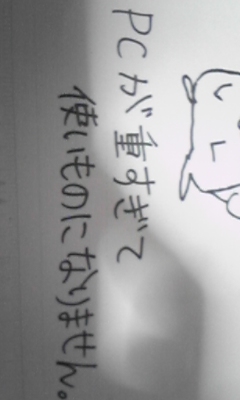 PCが重すぎて
使いものになりません。